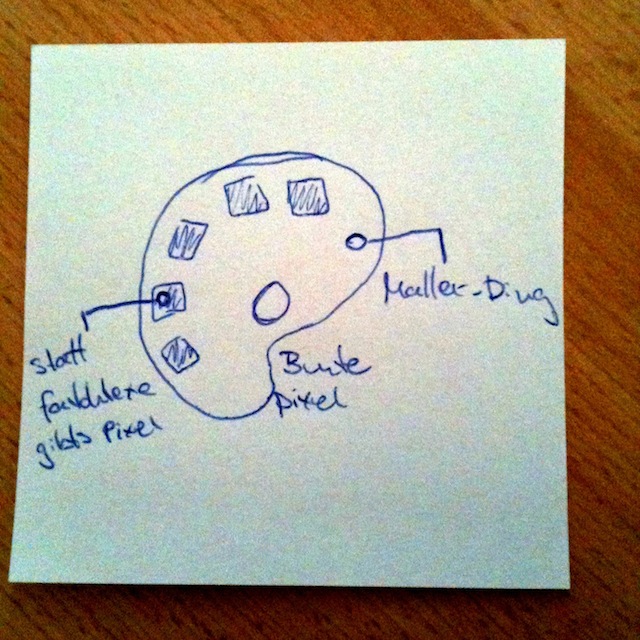 Maller-Ding
statt
farbklexe
gibts Pixel
Bunte
pixel